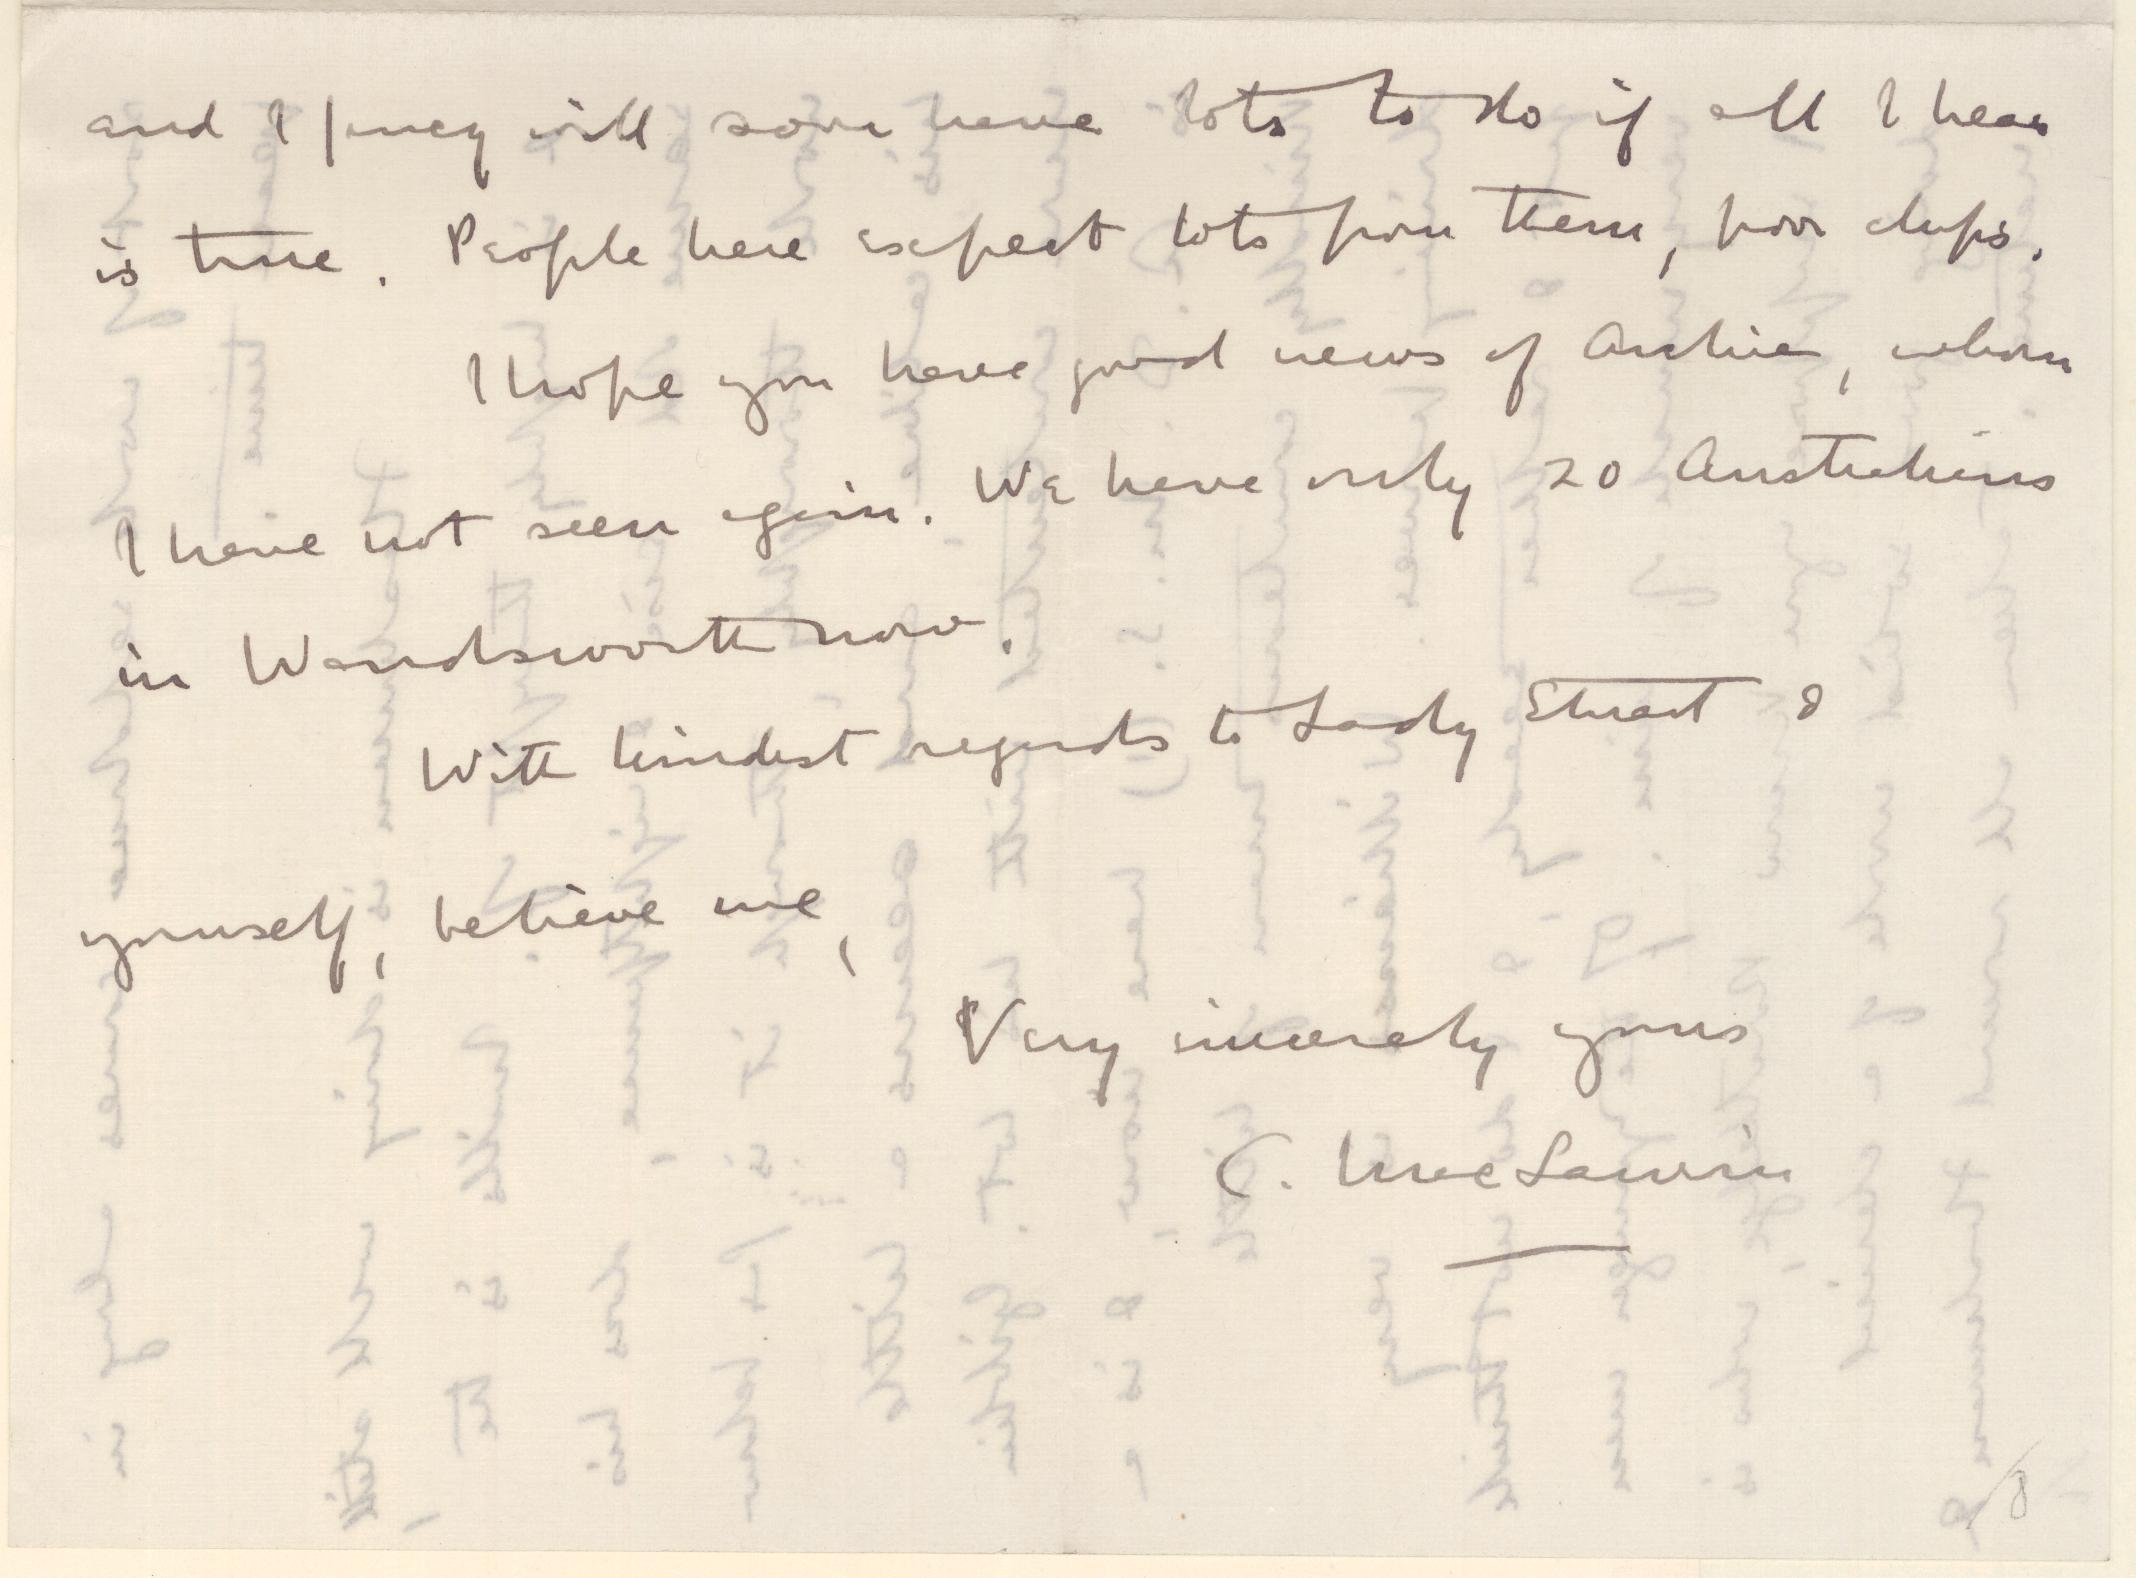 and I fancy will soon have lots to do if all I hear
is true. People here expect lots from them, poor chaps.
I hope you have good news of Archie, whom
I have not seen again. We have only 20 Australians
in Wandsworth now.
With kindest regards to Lady Stuart &
yourself, believe me,
Very sincerely yours
C. MacLaurin
8